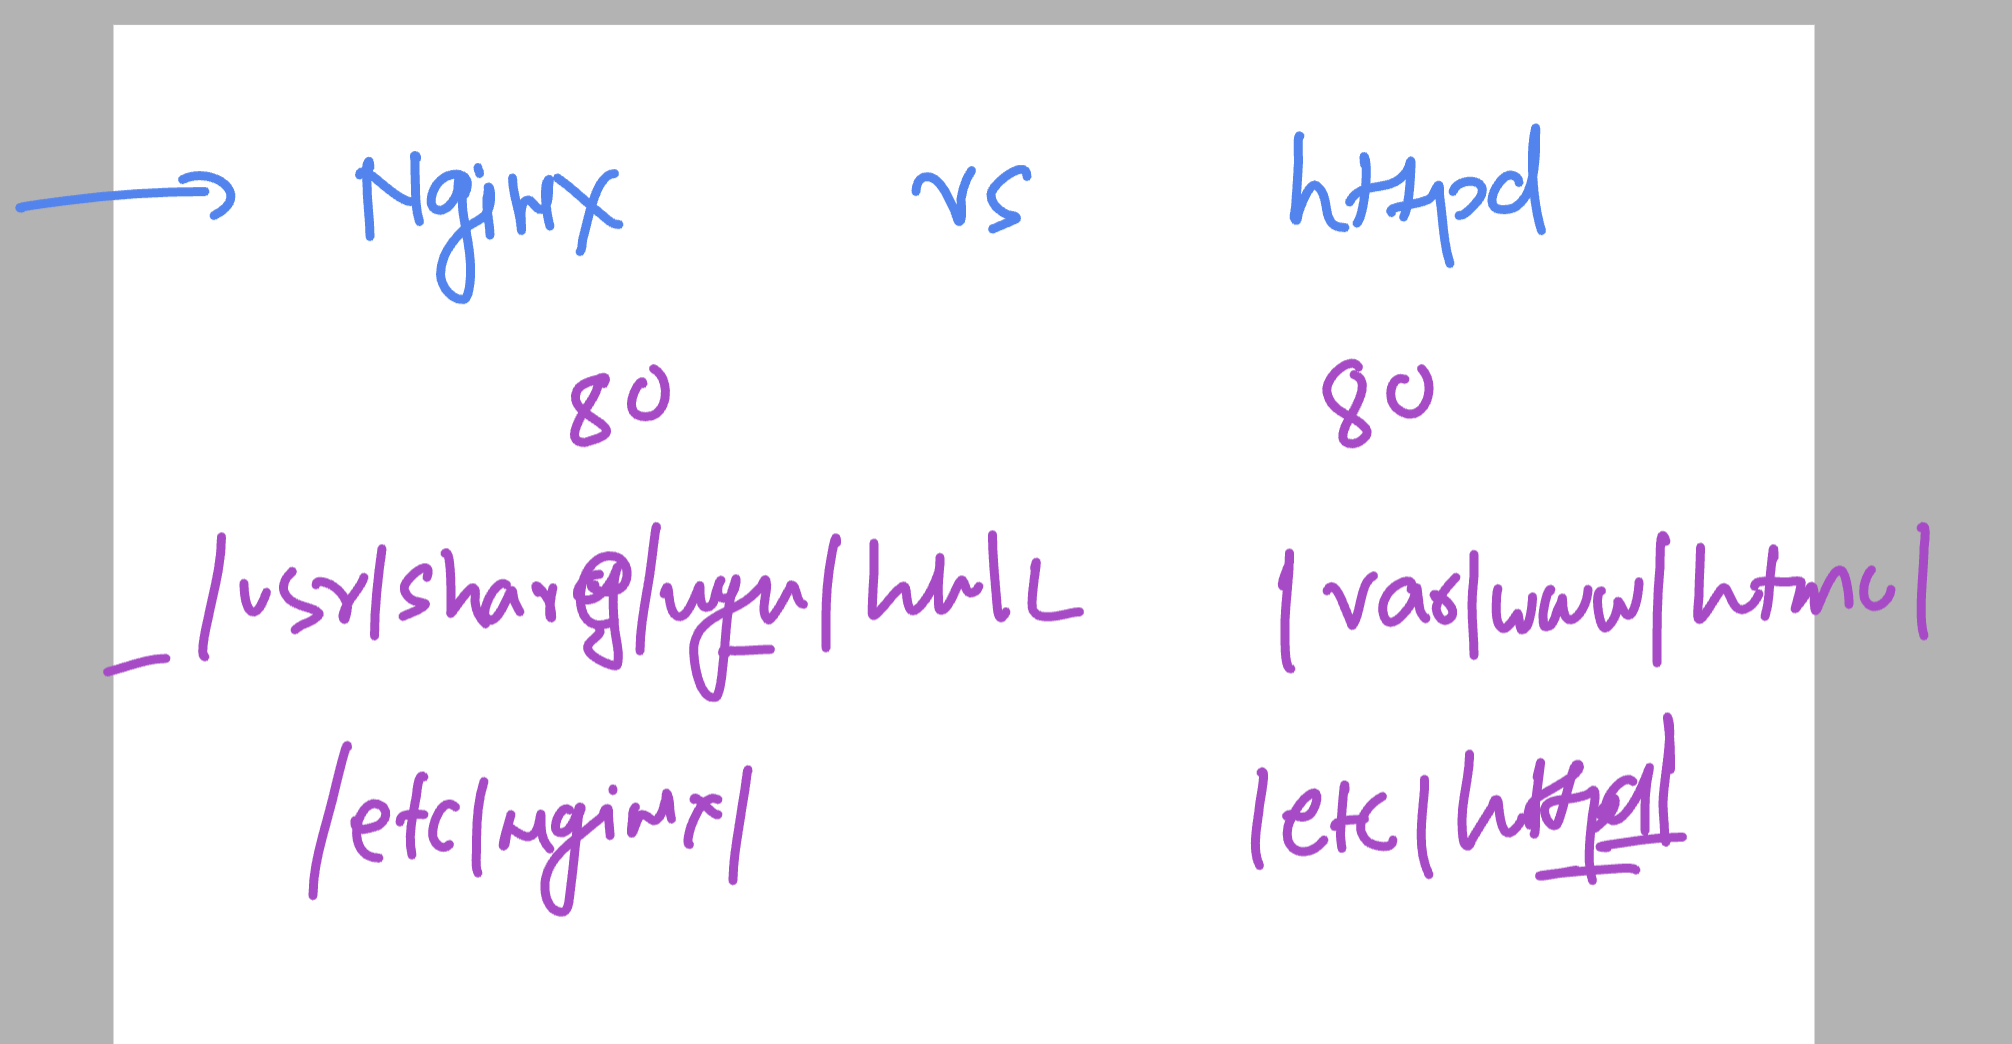 Nginx vs httpd
80 80
/usr/share/ngn/html /var/www/html/
/etc/nginx/ /etc/httpd/